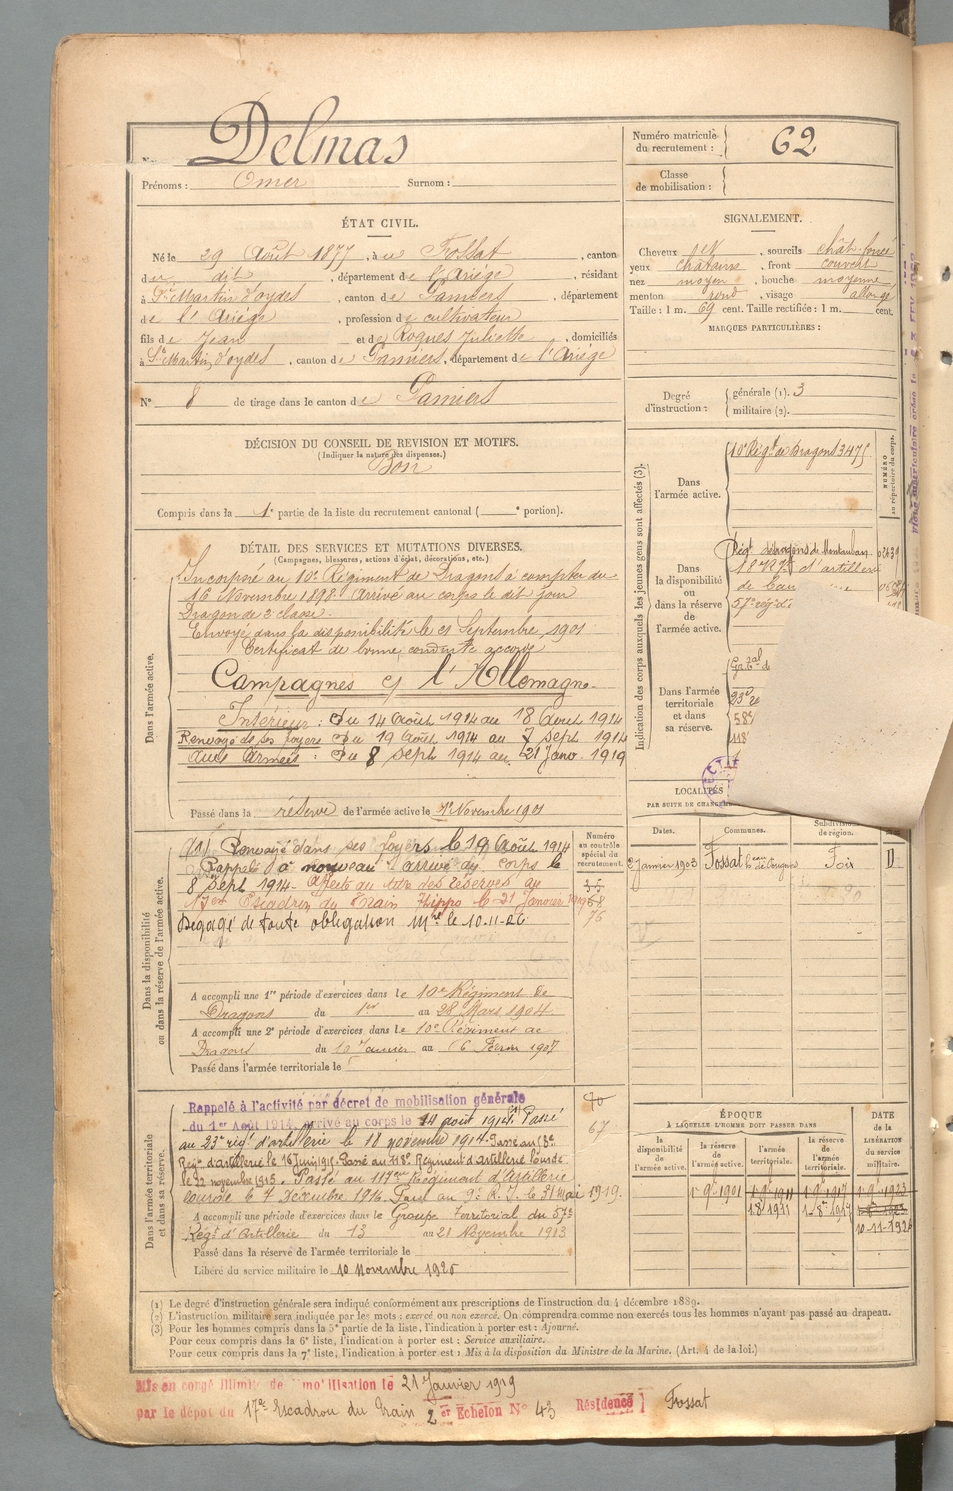 Delmas
Numéro matricule du recrutement : 62
Prénoms : Omer Surnom :
Classe de mobilisation :
ÉTAT CIVIL.
Né le 29 Août 1877, à Fossat, canton
du dit, département de l'Ariège, résidant
à St Martin d'oydes, canton de Pamiers, département
de l'Ariège, profession de cultivateur
fils de Jean et de Roques Juliette, domiciliés
à St Martin d'oydes, canton de Pamiers, département de l'Ariège
N° 8 de tirage dans le canton de Pamiers
SIGNALEMENT.
Cheveux, sourcils chât. foncé
yeux châtains, front couvert
nez moyen, bouche moyenne,
menton rond, visage allongé
Taille : 1 m. 69 cent. Taille rectifiée : 1 m. cent.
MARQUES PARTICULIÈRES :
Degré d'instruction : générale (1). 3
militaire (2).
DÉCISION DU CONSEIL DE REVISION ET MOTIFS.
(Indiquer la nature des dispenses.)
Bon
Compris dans la 1e partie de la liste du recrutement cantonal ( e portion).
Indication des corps auxquels les jeunes gens sont affectés (3).
NUMÉRO au répertoire du corps.
Dans l'armée active.
10e Régt de Dragons 3475
Dans la disponibilité ou dans la réserve de l'armée active.
Régt de dragons de Montauban
18e Rgt d'artillerie
de
57e rég d'
Dans l'armée territoriale et dans sa réserve.
23e
58e
118
DÉTAIL DES SERVICES ET MUTATIONS DIVERSES.
(Campagnes, blessures, actions d'éclat, décorations, etc.)
Dans l'armée active.
Incorporé au 10e Régiment de Dragons à compter du
16 Novembre 1898. Arrivé au corps le dit jour
Dragon de 2e classe.
Envoyé dans la disponibilité le 21 Septembre 1901
Certificat de bonne conduite accordé
Campagnes c/ l'Allemagne
Intérieur : Du 14 Août 1914 au 18 Août 1914
Renvoyé de ses foyers Du 19 Août 1914 au 7 sept 1914
Aux Armées : Du 8 sept 1914 au 21 Janv. 1919
Passé dans la réserve de l'armée active le 1er Novembre 1901
LOCALITÉS
PAR SUITE DE CHANGEM
Dates. Communes. Subdivisions de région.
2 Janvier 1903 Fossat Foix D
Dans la disponibilité ou dans la réserve de l'armée active.
Numéro au contrôle spécial du recrutement.
(1) Renvoyé dans ses foyers le 19 Août 1914
Rappelé à nouveau arrivé au corps le
8 sept 1914. Affecté au titre des réserves au
17er Escadron du Train Hippo le 21 Janvier 1919
Dégagé de toute obligation mre le 10-11-26
76
A accompli une 1re période d'exercices dans le 10e Régiment de
Dragons du 1er au 28 Mars 1904.
A accompli une 2e période d'exercices dans le 10e Régiment de
Dragons du 10 Janvier au 6 Février 1907
Passé dans l'armée territoriale le
Dans l'armée territoriale et dans sa réserve.
Rappelé à l'activité par décret de mobilisation générale
du 1er Août 1914. Arrivé au corps le 14 août 1914. (1) Passé
au 23e régt d'artillerie le 18 novembre 1914. Passé au 58e
Régt d'artillerie le 16 Juin 1915. Passé au 118e Régiment d'artillerie lourde
le 22 novembre 1915. Passé au 117me Régiment d'Artillerie
lourde le 7 Décembre 1916. Passé au 9e R.I. le 31 mai 1919.
70
67
A accompli une période d'exercices dans le Groupe territorial du 57e
Régt d'Artillerie du 13 au 21 Novembre 1913
Passé dans la réserve de l'armée territoriale le
Libéré du service militaire le 10 novembre 1926
ÉPOQUE
À LAQUELLE L'HOMME DOIT PASSER DANS
DATE de la LIBÉRATION du service militaire.
la disponibilité de l'armée active. la réserve de l'armée active. l'armée territoriale. la réserve de l'armée territoriale.
1-9-1901 1-9-1911 1-9-1917 1-9-1923
1-8-1911 1-8-1917
10-11-1926
(1) Le degré d'instruction générale sera indiqué conformément aux prescriptions de l'instruction du 4 décembre 1889.
(2) L'instruction militaire sera indiquée par les mots : exercé ou non exercé. On comprendra comme non exercés tous les hommes n'ayant pas passé au drapeau.
(3) Pour les hommes compris dans la 5e partie de la liste, l'indication à porter est : Ajourné.
Pour ceux compris dans la 6e liste, l'indication à porter est : Service auxiliaire.
Pour ceux compris dans la 7e liste, l'indication à porter est : Mis à la disposition du Ministre de la Marine. (Art. 4 de la loi.)
Mis en congé illimité de démobilisation le 21 Janvier 1919
par le dépot du 17e Escadron du Train 2 er Echelon N° 43 Résidence Fossat